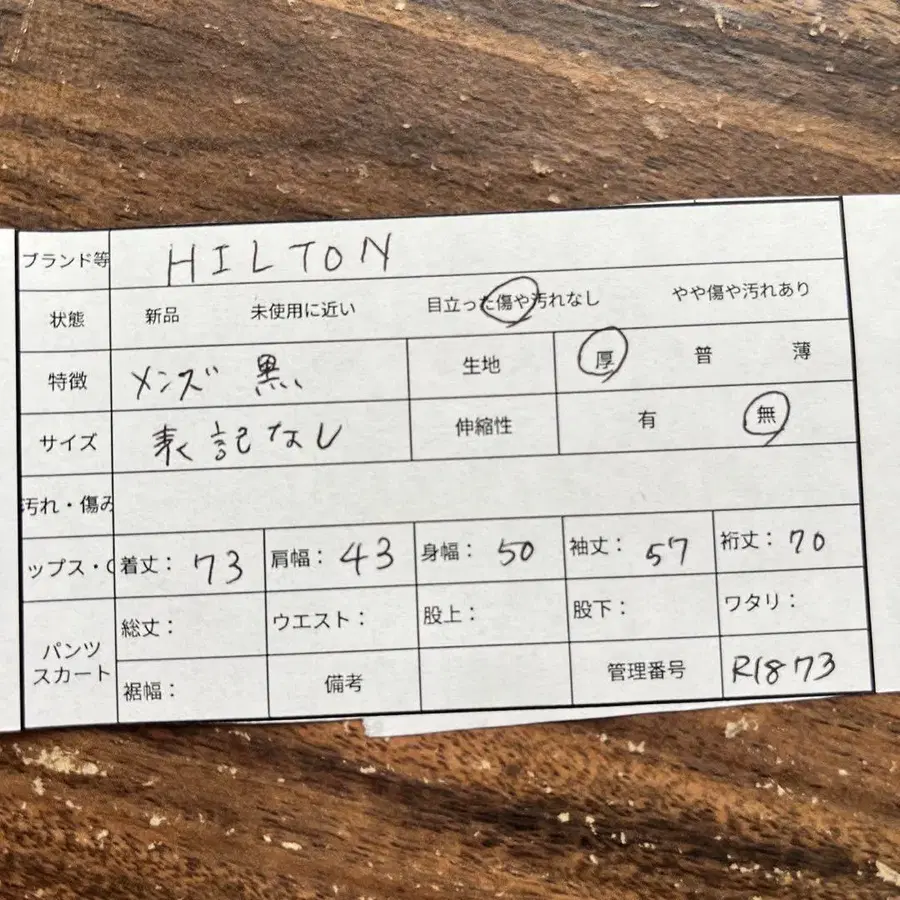 ブランド等 HILTON
状態 新品 未使用に近い 目立った傷や汚れなし やや傷や汚れあり
特徴 メンズ 黒 生地 厚 普 薄
サイズ 表記なし 伸縮性 有 無
汚れ・傷み
ップス・ 着丈: 73 肩幅: 43 身幅: 50 袖丈: 57 裄丈: 70
パンツ スカート
総丈: ウエスト: 股上: 股下: ワタリ:
裾幅: 備考 管理番号 R1873